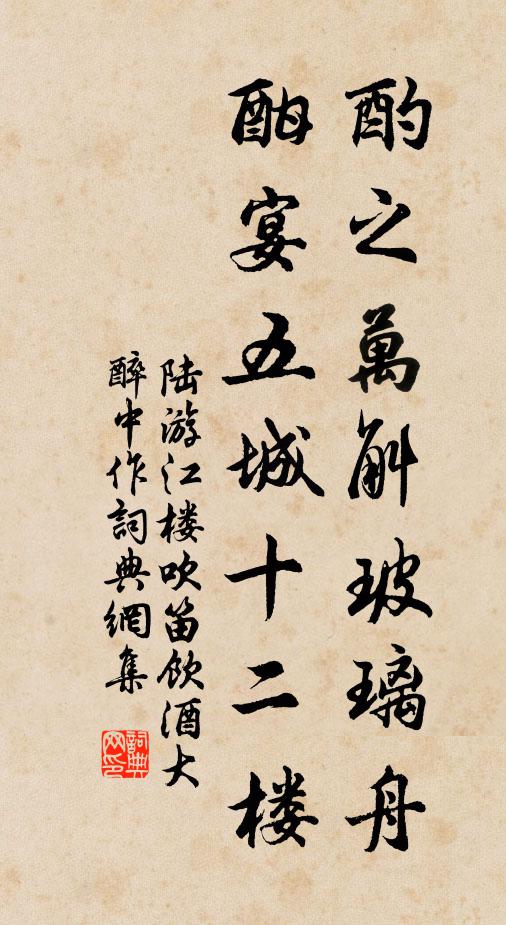 酌之萬斛玻璃舟
酣宴五城十二楼
陆游江楼吹笛饮酒大
醉中作詞典網集
詞典
网印